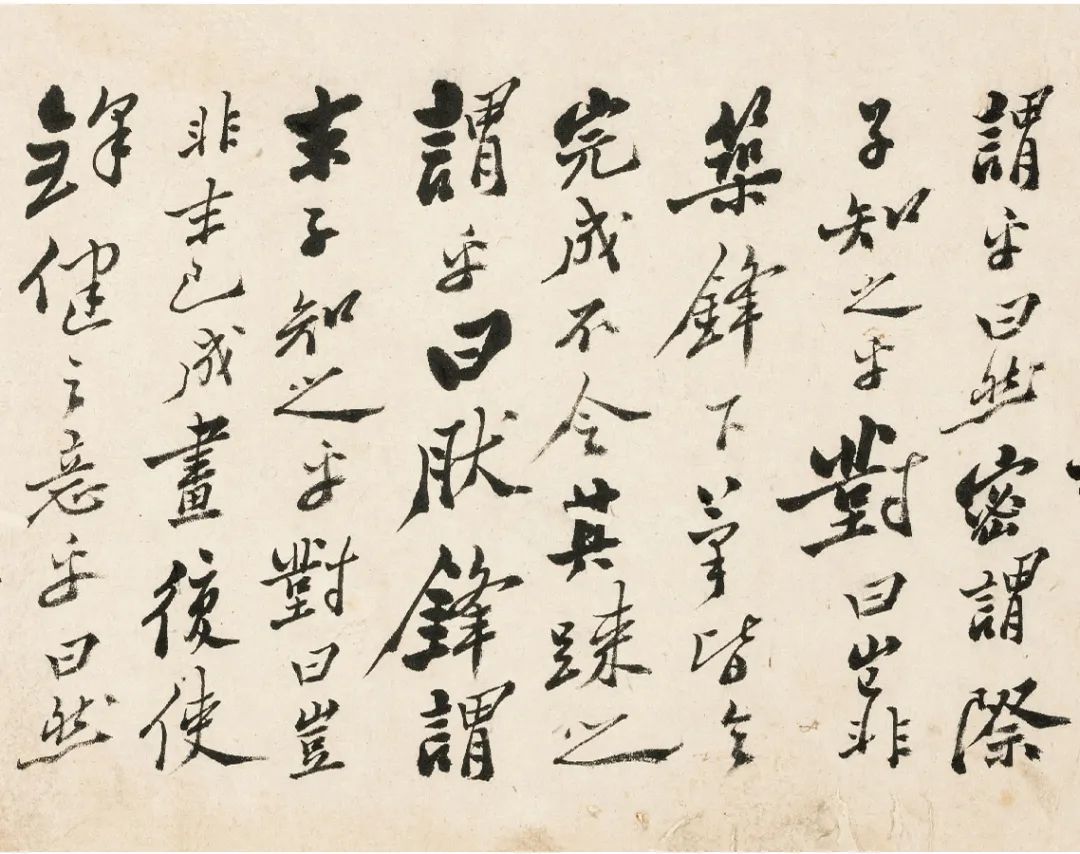 謂乎曰然密謂際
子知之乎對曰豈非
築鋒下筆皆令
完成不令其踈之
謂乎曰肰鋒謂
末子知之乎對曰豈
非末已成畫復使
鋒健之意乎曰然